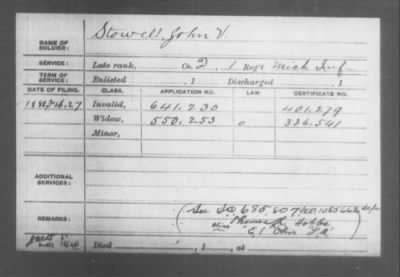 NAME OF SOLDIER: Stowell, John V.
SERVICE: Late rank, Co. 2, 1 Reg't Mich Inf
TERM OF SERVICE: Enlisted , 1 Discharged , 1
DATE OF FILING. CLASS. APPLICATION NO. LAW. CERTIFICATE NO.
Invalid, 641,230 401,279
Widow, 550,253 336,541
Minor,
ADDITIONAL SERVICES:
REMARKS:
685,807
alias Thomas
Died , 1 , at